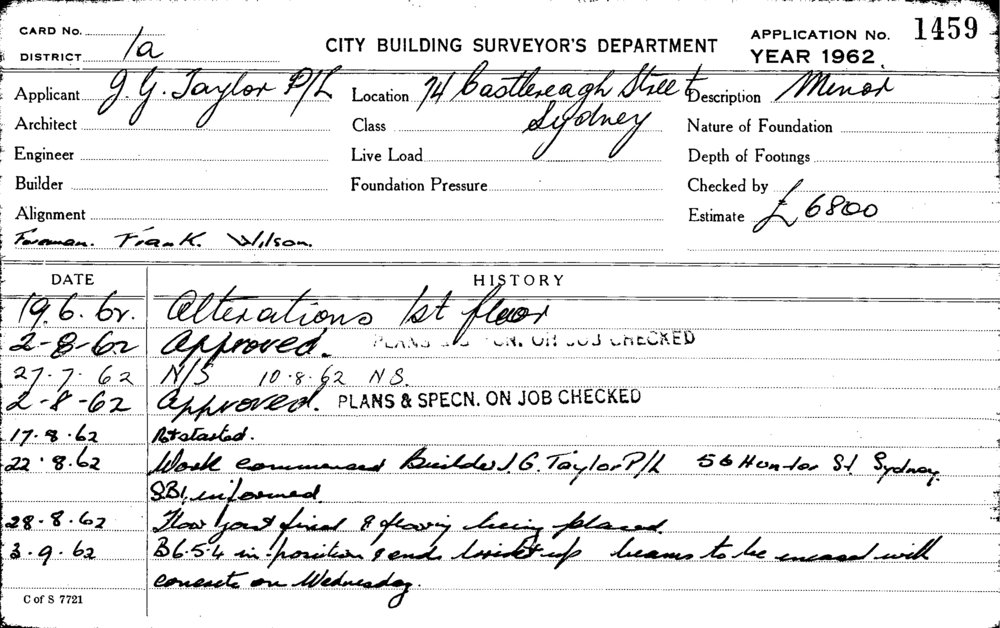 CARD No.
DISTRICT 1a
CITY BUILDING SURVEYOR'S DEPARTMENT
APPLICATION No. 1459
YEAR 1962
Applicant J. G. Taylor P/L Location 74 Castlereagh Street Description Minor
Architect Class Sydney Nature of Foundation
Engineer Live Load Depth of Footings
Builder Foundation Pressure Checked by
Alignment Estimate £6800
Foreman. Frank. Wilson.
DATE HISTORY
19.6.62. Alterations 1st floor
2-8-62 Approved. PLANS & SPECN. ON JOB CHECKED
27.7.62 N/S 10.8.62 N S.
2-8-62 Approved. PLANS & SPECN. ON JOB CHECKED
17.8.62 Not started.
22.8.62 Work commenced Builder J. G. Taylor P/L 56 Hunter St. Sydney.
SBI informed.
28.8.62 fixed & flooring being placed.
3.9.62 B6-5-4 in position & ends up beams to be encased with
concrete on Wednesday.
C of S 7721